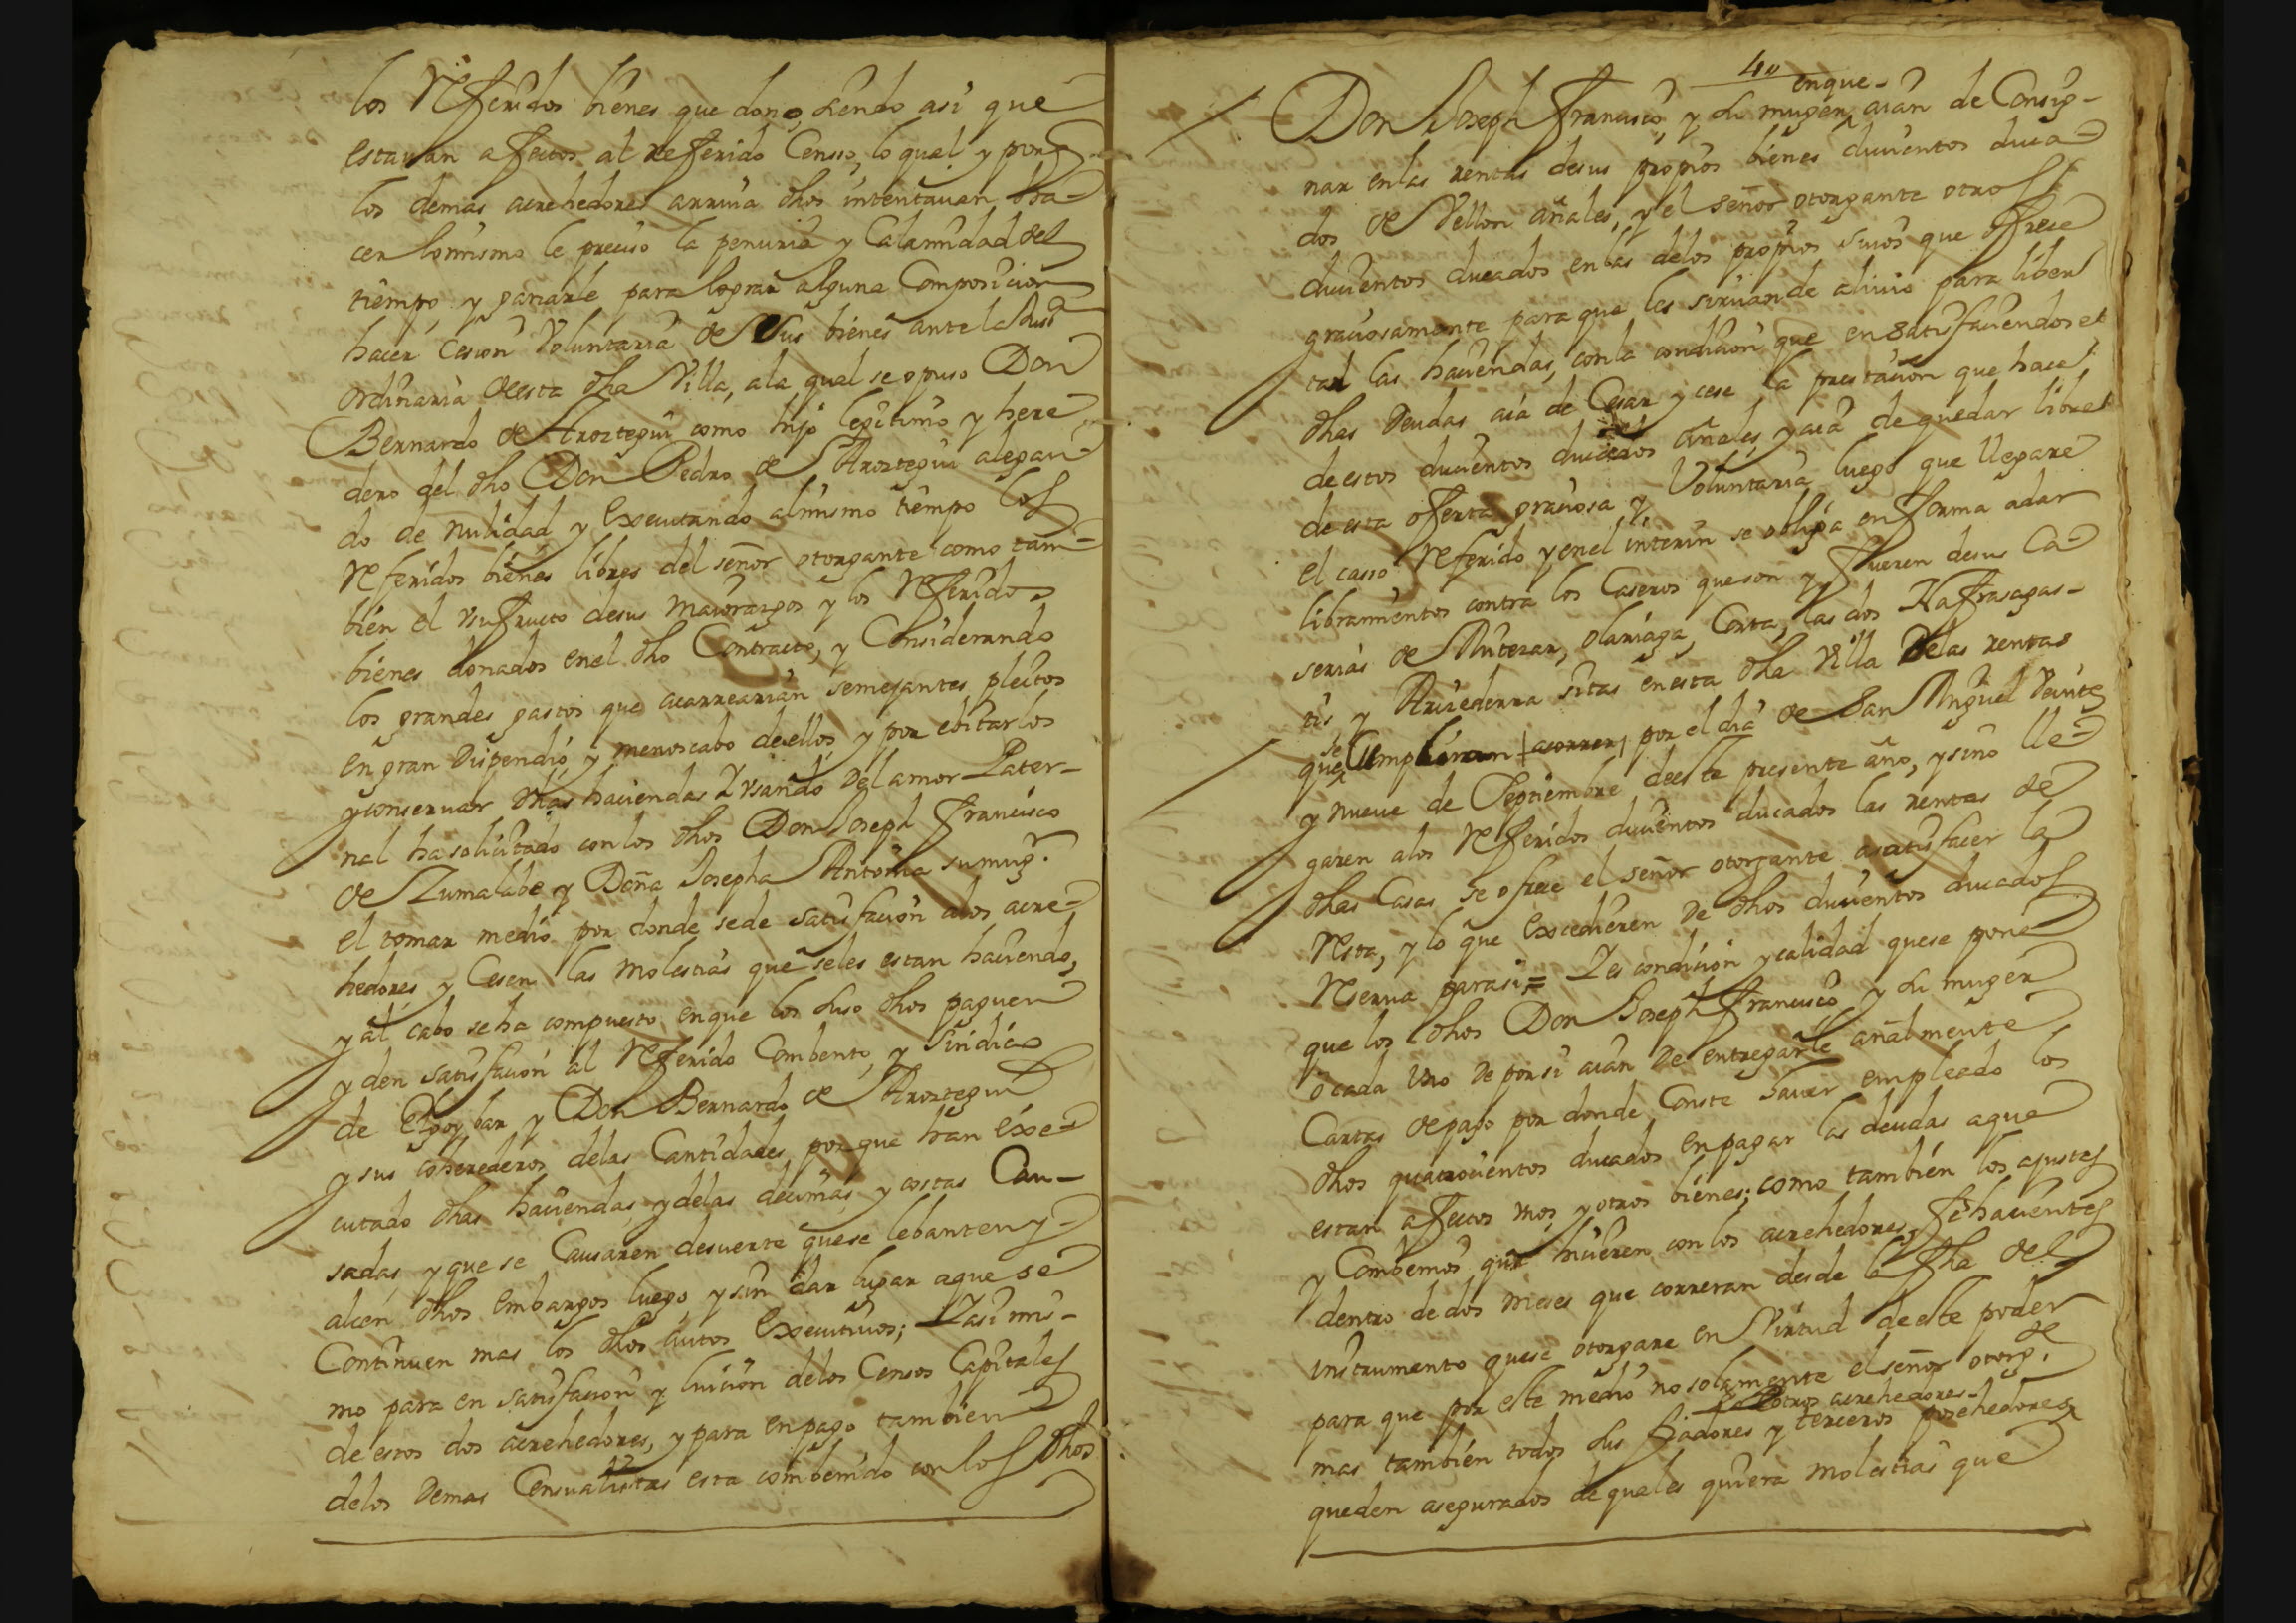 los Referidos bienes que dono, siendo asi que
estauan afectos al referido Censso, lo qual y porq̃
los demas acrehedores arriua dhos intentauan ha-
cer lo mismo le preciso la penuria y Calamidad del
tiempo, y ganarle para lograr alguna Composicion
hacer cesion Voluntaria de Sus bienes ante la Justª
ordinaria de esta dha Villa, ala qual se opuso Don
Bernardo de Aroztegui como hijo legitimo y here-
dero del dho Don Pedro de Aroztegui alegan-
do de nulidad y Executando al mismo tiempo los
Referidos bienes libres del señor otorgante como tam-
bien el vsufructo desus maiorazgos y los Referidos
bienes donados enel dho Contracto, y Considerando
los grandes gastos que acarrearian semejantes pleitos
en gran Dispendio y menoscabo de ellos y por ebitarlos
y conseruar dhas haciendas Y vsando Del amor Pater-
nal ha solicitado con los dhos Don Joseph Francisco
de Zumalabe y Doña Josepha Antonia su mugr.
el tomar medio por donde sede satisfacion alos acre-
hedores y Cesen las molestias que seles estan haciendo,
y al cabo se ha compuesto enque los suso dhos paguen
y den satisfacion al Referido Combento, y Sindico
de Elgoybar y Don Bernardo de Aroztegui
y sus coherederos delas Cantidades por que han Exe-
cutado dhas haciendas y delas decimas y costas Cau-
sadas y que se Causaren desuerte que se lebanten y
alcen dhos embargos luego, y sin dar lugar aque se
Continuen mas los dhos autos Executiuos; Y asi mis-
mo para en satisfacion y luicion delos Censos Capitales
de estos dos acrehedores, y para en pago tambien
delos Demas Censualistas esta combenido con los dhos
40
enque-
Don Joseph Francisco, y su muger, aian de Consig-
nar enlas rentas desus propios bienes ducientos duca-
dos de Vellon añales, y el señor otorgante otros
ducientos ducados enlas delos propios suios que ofrece
graciosamente para que les siruan de aliuio para liber-
tad las haciendas, con la condicion que en satisfaciendose
dhas Deudas aia de Cesar y cese la prestacion que hace
de estos ducientos ducados añales, y aia de quedar libre
de esta oferta graciosa y Voluntaria luego que llegare
el casso Referido y enel interin se obliga en forma adar
libramientos contra los Caseros que son y fueren desus Ca-
serias de Olariaga, Corta, las dos
y sitas en esta dha Villa Delas rentas
que se Cumpliran acorrer por el dia de San Miguel Veinte
y nueue de Septiembre de este presente año, y sino lle-
garen alos Referidos ducientos ducados las rentas de
dhas Casas se ofrece el señor otorgante asatisfacer la
Resta, y lo que Excedieren De dhos ducientos ducados
Reserua parasi = Y es condicion y calidad quese pone
que los dhos Don Joseph Francisco y su muger
o cada vno De porsi aian De entregarle añalmente
Cartas de pago por donde Conste hauer empleado los
dhos quatrocientos ducados en pagar las deudas aque
estan afectos vnos y otros bienes; como tambien los ajustes
y Combenios que hicieren con los acrehedores, fehacientes
dentro de dos meses que correran desde la fha del
instrumento quese otorgare en Virtud de este poder
para que por este medio no solamente el señor otorg.te
y otros acrehedores-
mas tambien todos sus fiadores y terceros posehedores
queden asegurados de quales quiera molestias que